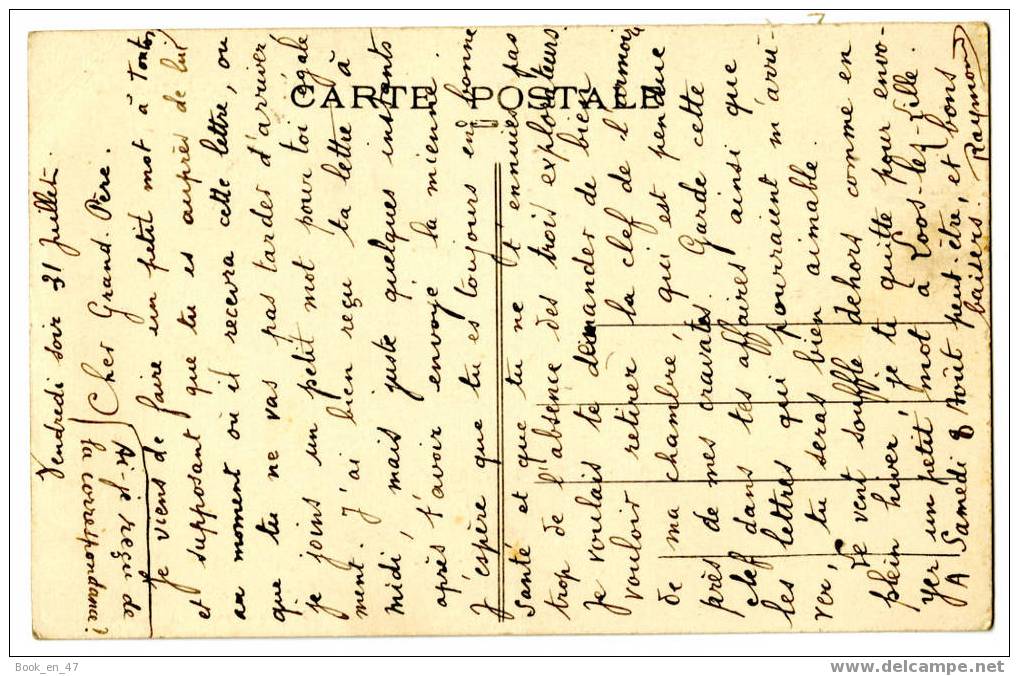 Vendredi soir 31 Juillet.
Cher Grand-Père.
Ai-je reçu de
la correspondance?
Je viens de faire un petit mot à Tonton
et supposant que tu es auprès de lui
au moment où il recevra cette lettre, ou
que tu ne vas pas tarder d'arriver
je joins un petit mot pour toi égale
ment. J'ai bien reçu ta lettre à
midi, mais juste quelques instants
après t'avoir envoyé la mienne.
J'espère que tu es toujours en bonne
santé et que tu ne t'ennuies pas
trop de l'absence des trois explorateurs.
Je voulais te demander de bien
vouloir retirer la clef de l'armoire
de ma chambre, qui est pendue
près de mes cravates. Garde cette
clef dans tes affaires ainsi que
les lettres qui pourraient m'arri-
ver, tu seras bien aimable.
Le vent souffle dehors comme en
plein hiver, je te quitte pour envo-
yer un petit mot à Loos-les-Lille.
A Samedi 8 Août peut-être, et bons
baisers. Raymond
CARTE POSTALE
Book_en_47
www.delcampe.net